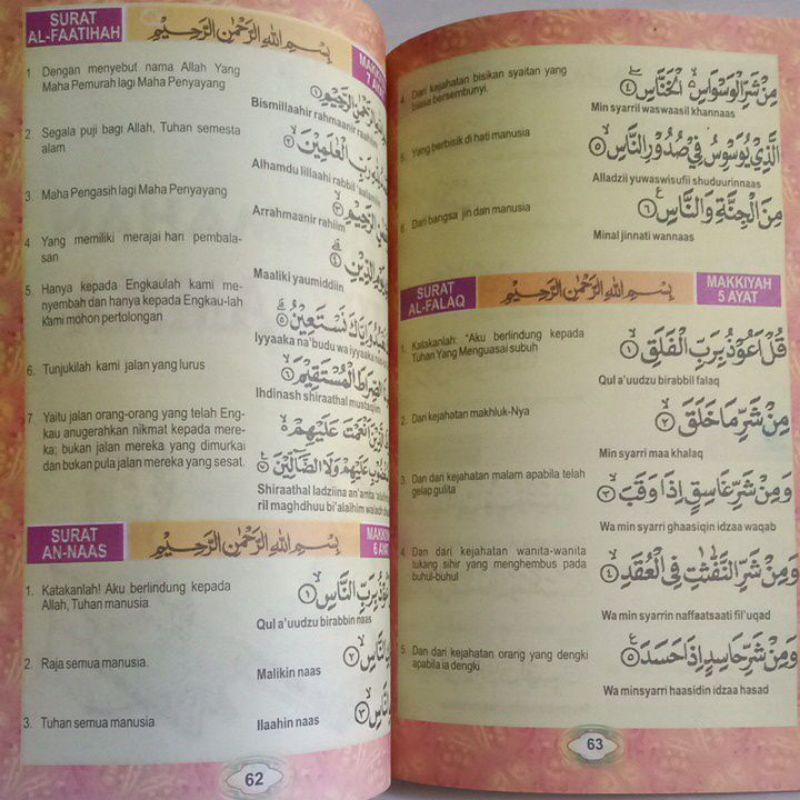 SURAT
AL-FAATIHAH
بِسْمِ اللهِ الرَّحْمٰنِ الرَّحِيْمِ
MAKKIYAH
7 AYAT
1 Dengan menyebut nama Allah Yang
Maha Pemurah lagi Maha Penyayang
الرَّحِيْمِ ١
Bismillaahir rahmaanir raahiim
2 Segala puji bagi Allah, Tuhan semesta
alam
رَبِّ الْعٰلَمِيْنَ ٢
Alhamdu lillaahi rabbil 'aalamiin
3. Maha Pengasih lagi Maha Penyayang
الرَّحِيْمِ ٣
Arrahmaanir rahiim
4 Yang memiliki merajai hari pembala-
san
الدِّيْنِ ٤
Maaliki yaumiddiin
5. Hanya kepada Engkaulah kami me-
nyembah dan hanya kepada Engkau-lah
kami mohon pertolongan
وَاِيَّاكَ نَسْتَعِيْنُ ٥
Iyyaaka na'budu wa iyyaaka
6. Tunjukilah kami jalan yang lurus
الصِّرَاطَ الْمُسْتَقِيْمَ ٦
Ihdinash shiraathal mustaqiim
7 Yaitu jalan orang-orang yang telah Eng-
kau anugerahkan nikmat kepada mere-
ka; bukan jalan mereka yang dimurkai
dan bukan pula jalan mereka yang sesat.
الَّذِيْنَ اَنْعَمْتَ عَلَيْهِمْ
عَلَيْهِمْ وَلَا الضَّالِّيْنَ ٧
Shiraathal ladziina an'amta
ril maghdhuu bi'alaihim
SURAT
AN-NAAS
بِسْمِ اللهِ الرَّحْمٰنِ الرَّحِيْمِ
MAKKIYAH
6 AYAT
1. Katakanlah! Aku berlindung kepada
Allah, Tuhan manusia.
بِرَبِّ النَّاسِ ١
Qul a'uudzu birabbin naas
2. Raja semua manusia.
النَّاسِ ٢
Malikin naas
3. Tuhan semua manusia
النَّاسِ ٣
Ilaahin naas
62
4. Dari kejahatan bisikan syaitan yang
biasa bersembunyi.
مِنْ شَرِّ الْوَسْوَاسِ الْخَنَّاسِ ٤
Min syarril waswaasil khannaas
5. Yang berbisik di hati manusia
الَّذِيْ يُوَسْوِسُ فِيْ صُدُوْرِ النَّاسِ ٥
Alladzii yuwaswisufii shuduurinnaas
6. Dari bangsa jin dan manusia
مِنَ الْجِنَّةِ وَالنَّاسِ ٦
Minal jinnati wannaas
SURAT
AL-FALAQ
بِسْمِ اللهِ الرَّحْمٰنِ الرَّحِيْمِ
MAKKIYAH
5 AYAT
1. Katakanlah: "Aku berlindung kepada
Tuhan Yang Menguasai subuh
قُلْ اَعُوْذُ بِرَبِّ الْفَلَقِ ١
Qul a'uudzu birabbil falaq
2. Dari kejahatan makhluk-Nya
مِنْ شَرِّ مَا خَلَقَ ٢
Min syarri maa khalaq
3. Dan dari kejahatan malam apabila telah
gelap gulita
وَمِنْ شَرِّ غَاسِقٍ اِذَا وَقَبَ ٣
Wa min syarri ghaasiqin idzaa waqab
4. Dan dari kejahatan wanita-wanita
tukang sihir yang menghembus pada
buhul-buhul
وَمِنْ شَرِّ النَّفّٰثٰتِ فِى الْعُقَدِ ٤
Wa min syarrin naffaatsaati fil'uqad
5. Dan dari kejahatan orang yang dengki
apabila ia dengki
وَمِنْ شَرِّ حَاسِدٍ اِذَا حَسَدَ ٥
Wa minsyarri haasidin idzaa hasad
63